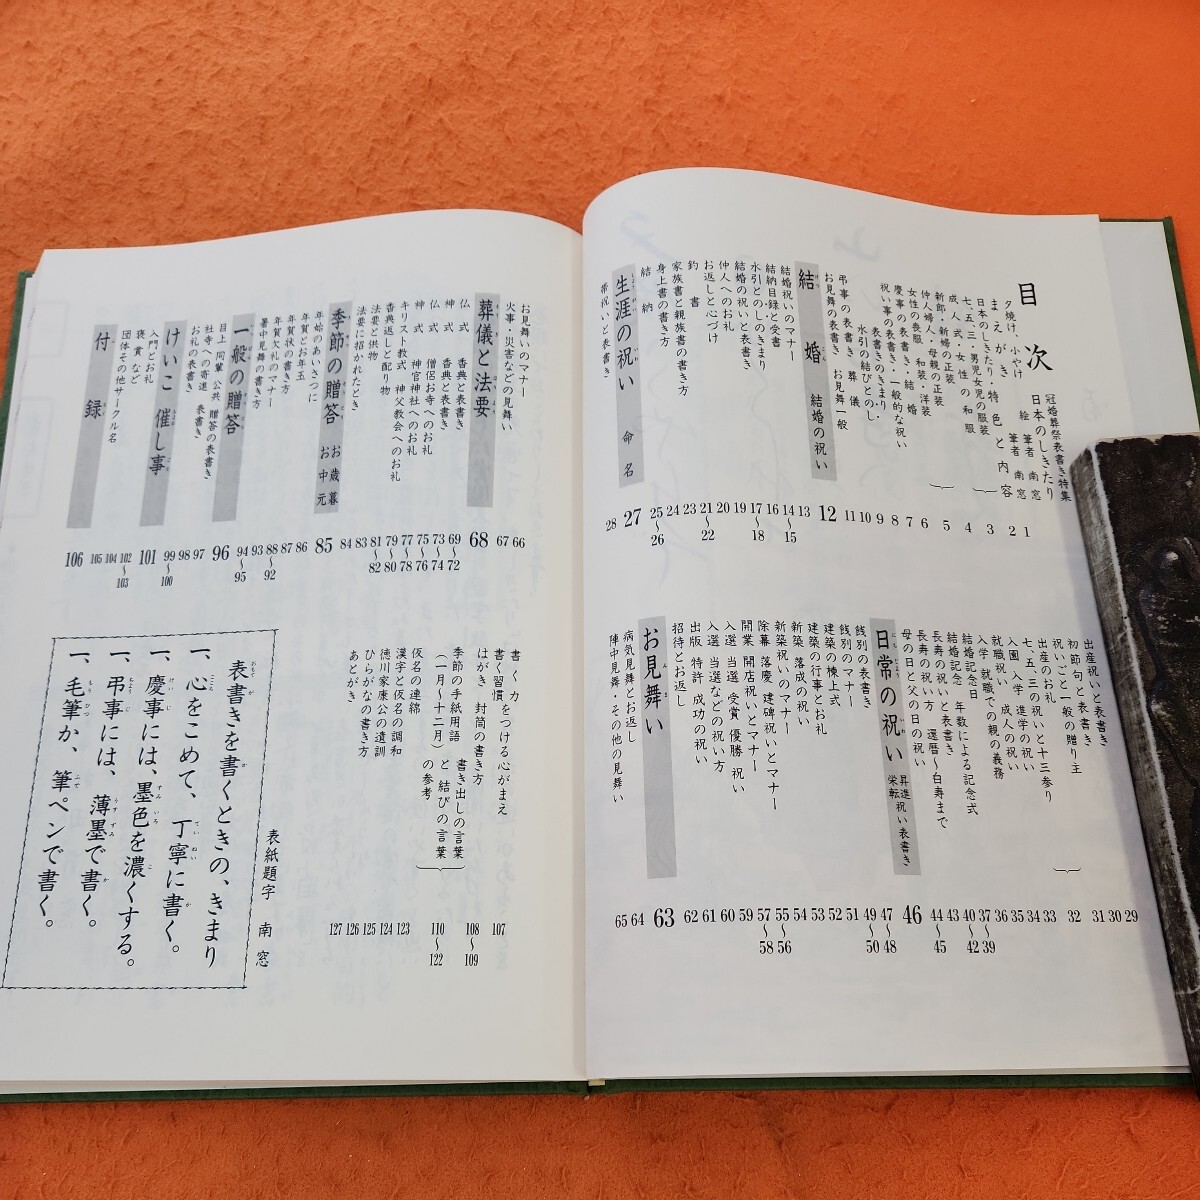 目次
冠婚葬祭表書き特集
日本のしきたり
夕焼け、小やけ 絵 筆者 南窓 1
まえがき 筆者 南窓 2
日本のしきたり・特色と内容 3
七・五・三・男児女児の服装
成人式・女性の和服 4
新郎・新婦の正装 5
仲人婦人・母親の正装
女性の喪服 和装・洋装 6
慶事の表書き・結婚 7
祝い事の表書き・一般的な祝い 8
表書きのきまり・ 9
水引の結びとのし・ 10
弔事の表書き 葬儀 11
お見舞の表書き お見舞一般
結婚 結婚の祝い 12
結婚祝いのマナー 13
結納目録と受書 14〜15
水引とのしのきまり 16
結婚の祝いと表書き 17〜18
仲人へのお礼 19
お返しと心づけ 20
釣書 21〜22
家族書と親族書の書き方 23
身上書の書き方 24
結納 25〜26
生涯の祝い 命名 27
帯祝いと表書き 28
出産祝いと表書き 29
初節句と表書き 30
祝いごと一般の贈り主 31
出産のお礼 32
七、五、三の祝いと十三参り
入園 入学 進学の祝い 33
就職祝い 成人の祝い 34
入学 就職での親の義務 35
結婚記念日 36
結婚記念 年数による記念式 37〜39
長寿の祝いと表書き 40〜42
長寿の祝い方 還暦〜白寿まで 43
母の日と父の日の祝い 44〜45
日常の祝い 昇進祝い表書き 栄転 46
餞別の表書き 47〜48
餞別のマナー 49〜50
建築の棟上式 51
建築の行事とお礼 52
新築 落成の祝い 53
新築祝いのマナー 54
除幕 落慶 建碑祝いとマナー 55〜56
開業 開店祝いとマナー 57〜58
入選 当選 受賞 優勝 祝い 59
入選 当選などの祝い方 60
出版 特許 成功の祝い 61
招待とお返し 62
お見舞い 63
病気見舞とお返し 64
陣中見舞・その他の見舞い 65
お見舞いのマナー 66
火事・災害などの見舞い 67
葬儀と法要 68
仏式 香典と表書き 69〜72
神式 香典と表書き 73〜74
仏式 僧侶お寺へのお礼 75〜76
神式 神官神社へのお礼 77〜78
キリスト教式 神父教会へのお礼 79〜80
香典返しと配り物 81〜82
法要と供物 83
法要に招かれたとき 84
季節の贈答 お歳暮 お中元 85
年始のあいさつに 86
年賀とお年玉 87
年賀状の書き方 88〜92
年賀欠礼のマナー 93
暑中見舞の書き方 94〜95
一般の贈答 96
目上 同輩 公共 贈答の表書き 97
社寺への寄進 表書き 98
お礼の表書き 99〜100
けいこ 催し事 101
入門とお礼 102〜103
褒賞など 104
団体その他サークル名 105
付録 106
書く力 107
書く習慣をつける心がまえ
はがき 封筒の書き方 108〜109
季節の手紙用語 書き出しの言葉
(一月〜十二月) と 結びの言葉
の参考 110〜122
仮名の連綿 123
漢字と仮名の調和 124
徳川家康公の遺訓 125
ひらがなの書き方 126
あとがき 127
表紙題字 南窓
表書きを書くときの、きまり
一、心をこめて、丁寧に書く。
一、慶事には、墨色を濃くする。
一、弔事には、薄墨で書く。
一、毛筆か、筆ペンで書く。